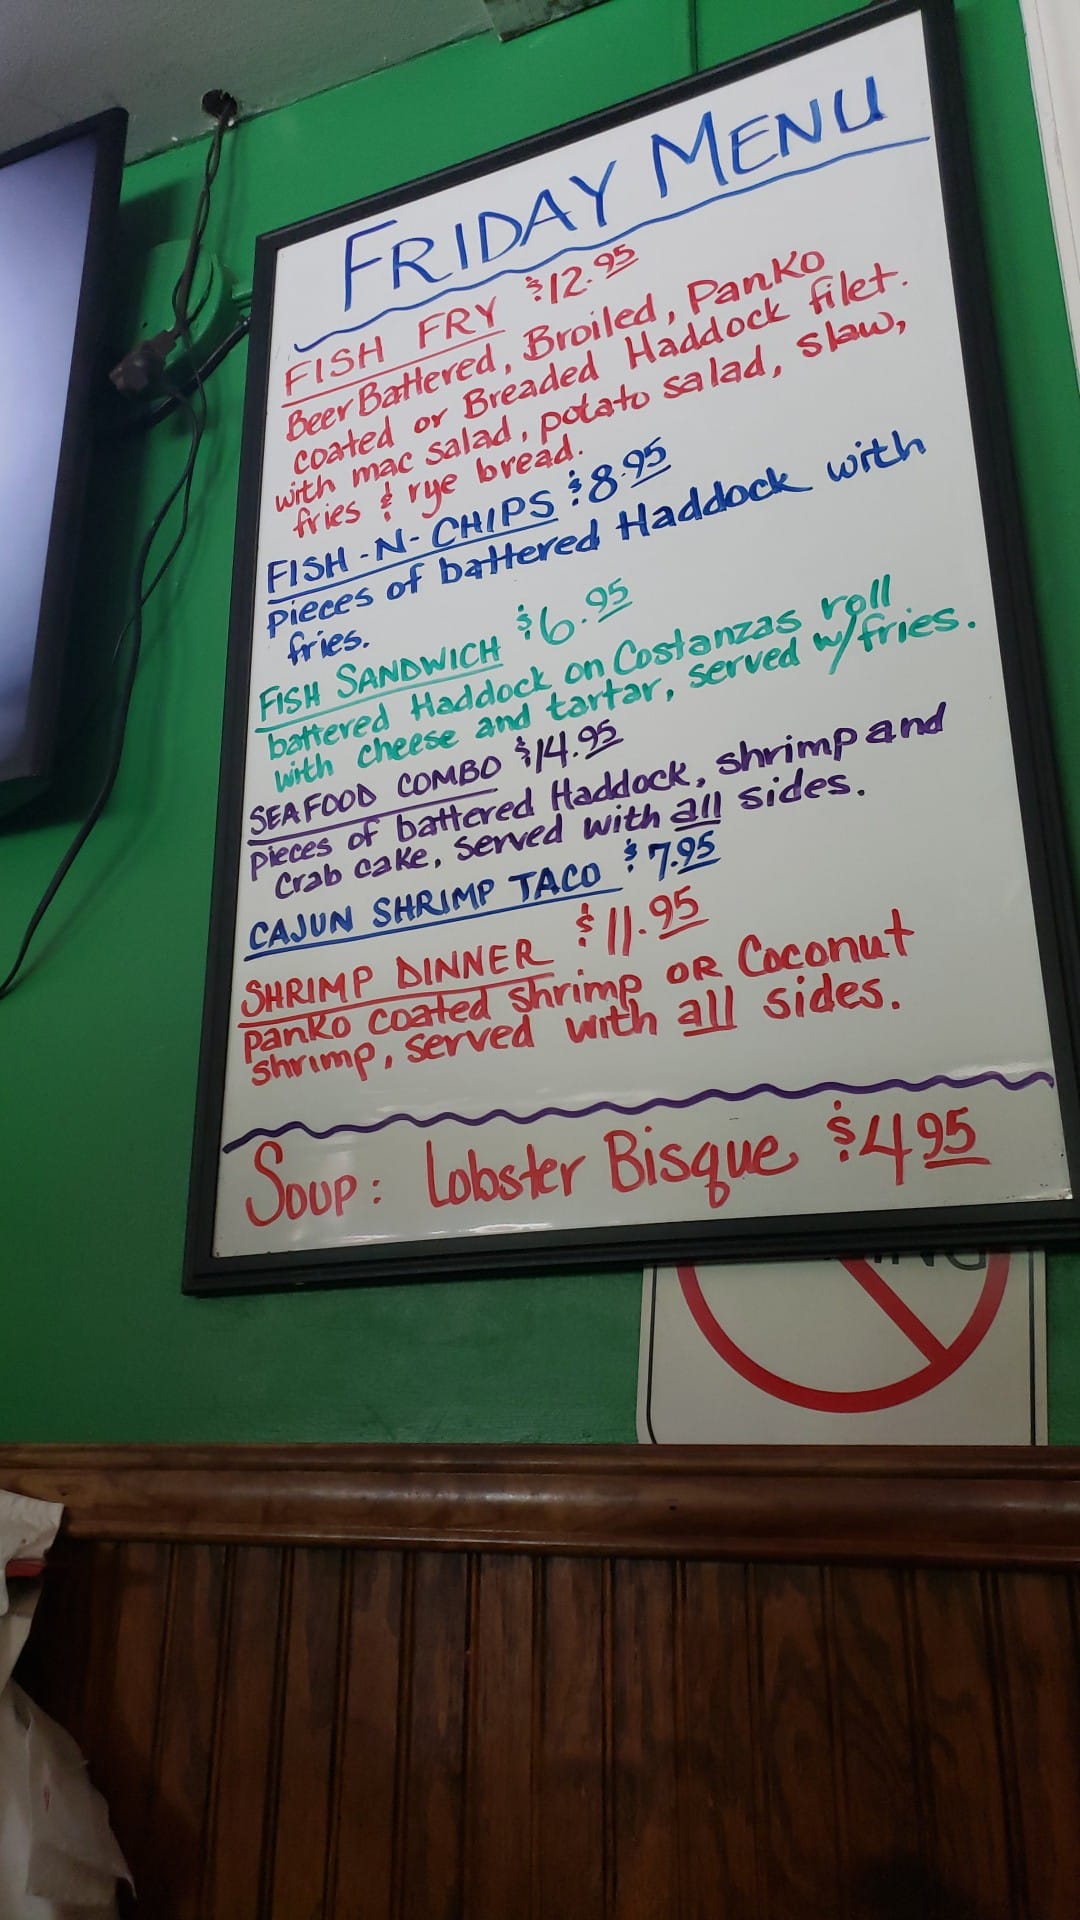 FRIDAY MENU
FISH FRY $12.95
Beer Battered, Broiled, Panko
coated or Breaded Haddock filet.
with mac salad, potato salad, slaw,
fries & rye bread.
FISH-N-CHIPS $8.95
pieces of battered Haddock with
fries.
FISH SANDWICH $6.95
battered Haddock on Costanzas roll
with cheese and tartar, served w/fries.
SEAFOOD COMBO $14.95
pieces of battered Haddock, shrimp and
crab cake, served with all sides.
CAJUN SHRIMP TACO $7.95
SHRIMP DINNER $11.95
panko coated shrimp OR Coconut
shrimp, served with all sides.
SOUP: Lobster Bisque $4.95